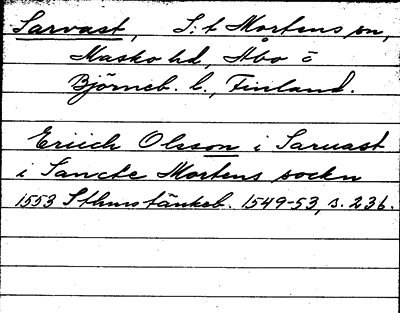 Sarvast, S:t Mårtens sn,
Masko hd, Åbo o
Björneb. l., Finland.
Eriich Olsson i Saruast
i Sancte Mortens sockn
1553 Sthms tänkeb. 1549-53, s. 236.